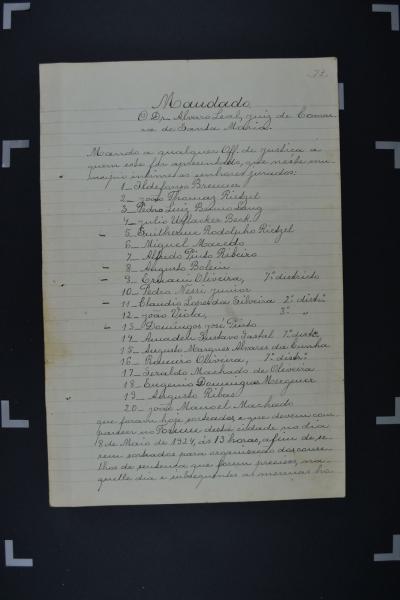 72.
Mandado
O Dr. Alvaro Leal, juiz de Comar-
ca de Santa Maria.
Mando a qualquer Off. de justiça a
quem este fôr apresentado, que neste mu-
nicipio intime os senhores jurados:
1 - Ildefonso Brenner
2 - João Thomaz Rietzel
3 - Pedro Luiz Lang
4 - Julio Uflacker Beck
- 5 - Guilherme Rodolpho Rietzel
6 - Miguel Macedo
7 - Alfredo Pinto Ribeiro
- 8 - Augusto
- 9 - Ernani Oliveira, 7º districto
10 - Pedro Junior
- 11 - Claudio Lopes da Silveira 2º distrº
12 - João Viola, 3º "
- 13 - Domingos José Pinto
14 - Amadeu Gustavo Gastal 1º distrº
15 - Augusto Marques Alvares da Cunha
16 - Romeuro Oliveira, 7º distrº
17 - Geraldo Machado de Oliveira
18 - Eugenio Domingues
19 - Augusto Ribas
20 - José Manoel Machado
que foram hoje sorteados e que devem com-
parecer no Forum desta cidade no dia
18 de Maio de 1924, ás 13 horas, afim de se-
rem sorteados para organisação dos conse-
lhos de sentença que forem precisos, na-
quelle dia e subsequentes as mesmas ho-